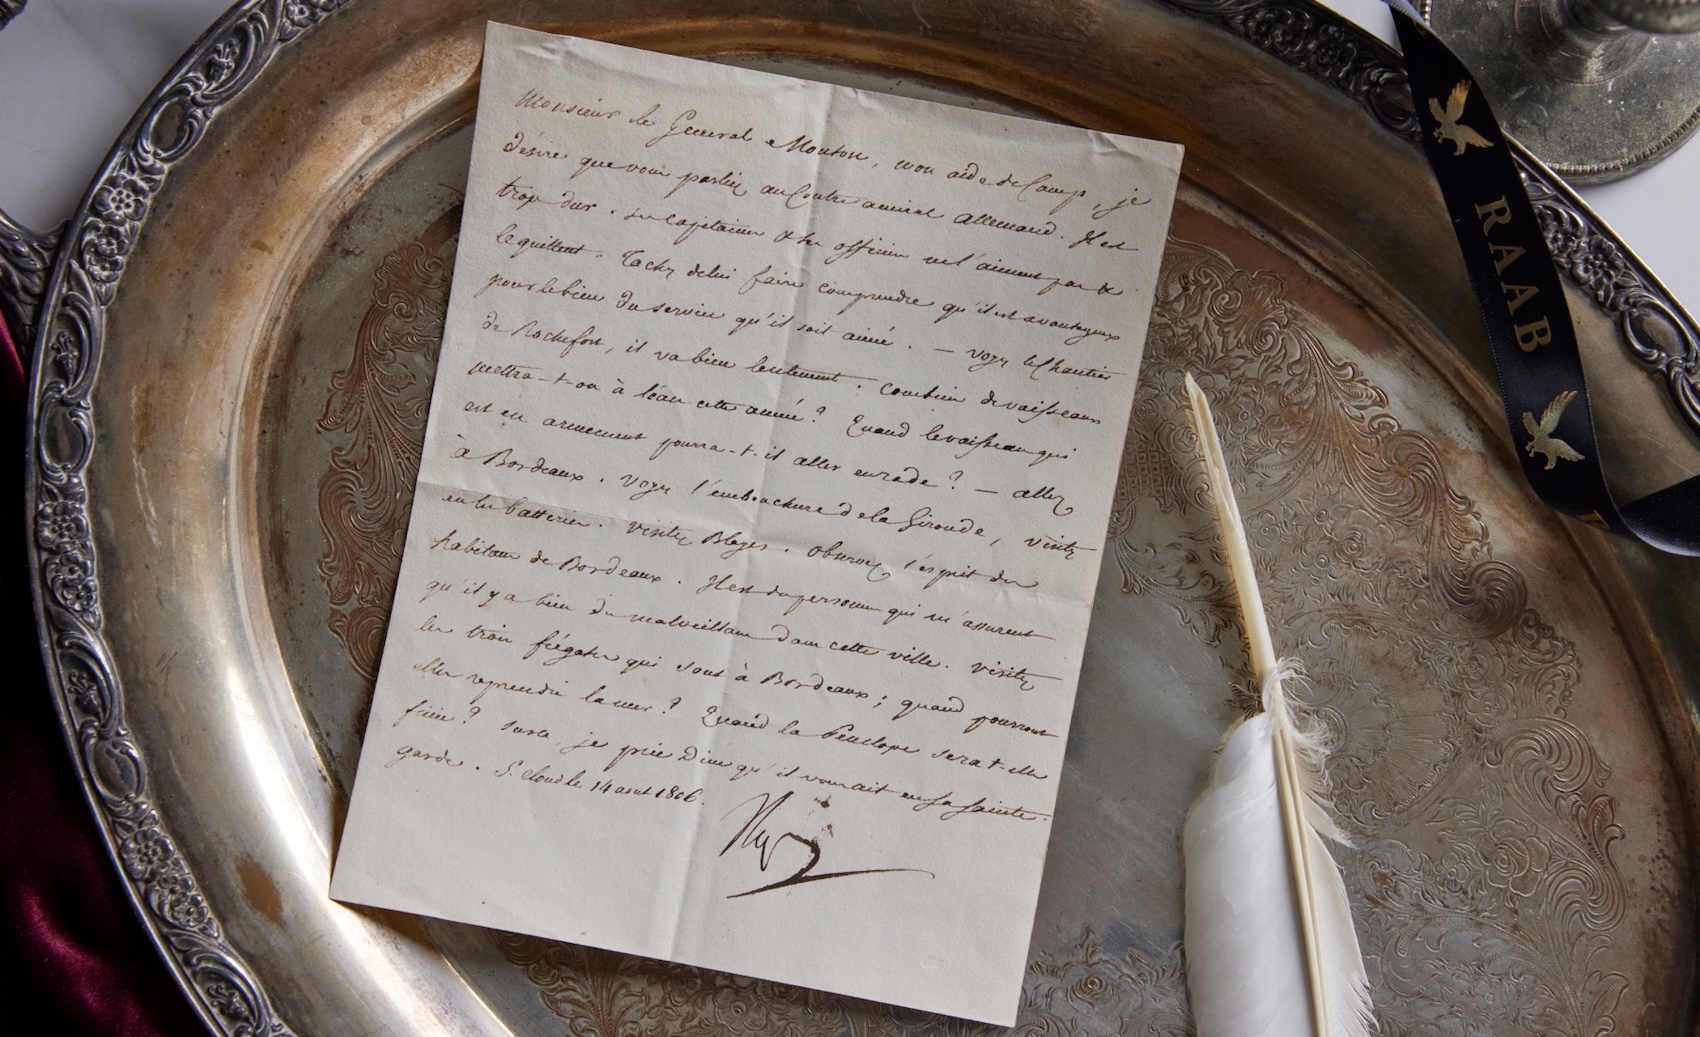 Monsieur le General Mouton, mon aide de Camp, je
désire que vous parliez au Contre amiral Allemand. Il est
trop dur. Ses capitaines & ses officiers ne l'aiment pas &
le quittent. Tachez de lui faire comprendre qu'il est avantageux
pour le bien du service qu'il soit aimé. — Voyez les Chantiers
de Rochefort, il va bien lentement: combien de vaisseaux
mettra-t-on à l'eau cette année? Quand le vaisseau qui
est en armement pourra-t-il aller en rade? — allez
à Bordeaux. Voyez l'embouchure de la Gironde, visitez
en les batteries. Visitez Blayes. Observez l'esprit des
habitans de Bordeaux. Il est des personnes qui m'assurent
qu'il y a bien des malveillans dans cette ville. Visitez
les trois frégates qui sont à Bordeaux; quand pourront
elles reprendre la mer? Quand la Penelope sera t-elle
finie? Sur ce, je prie Dieu qu'il vous ait en sa sainte
garde. St. Cloud le 14 aout 1806.
Nap
RAAB